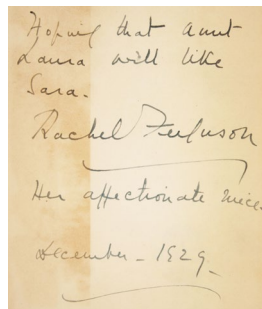 Hoping that Aunt
Laura will like
Sara.
Rachel Ferguson
Her affectionate niece.
December - 1929.